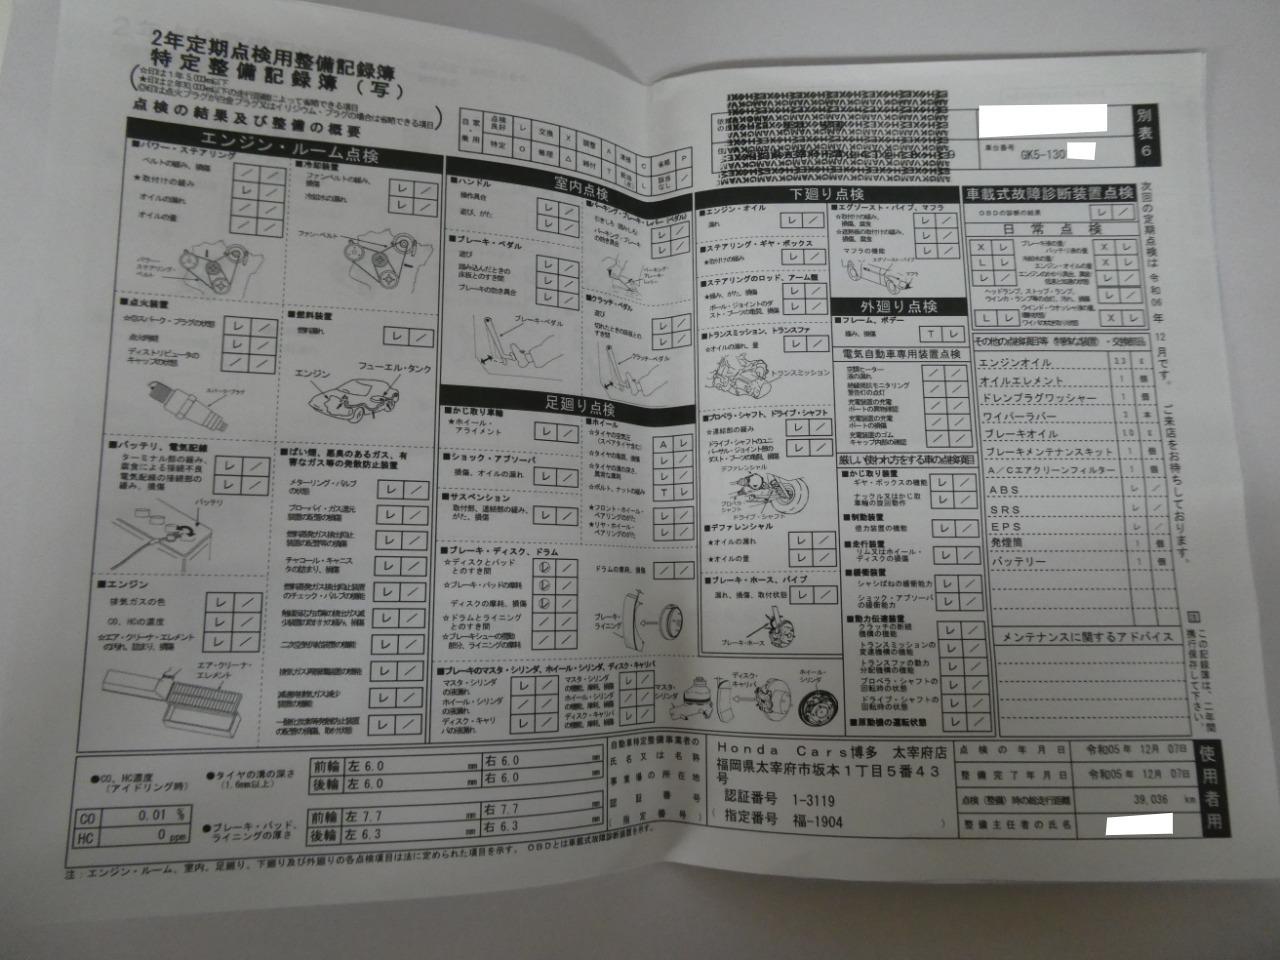 2年定期点検用整備記録簿
特定整備記録簿(写)
点検の結果及び整備の概要
別表6
車台番号
GK5-130
エンジン・ルーム点検
■パワー・ステアリング
ベルトの緩み、損傷
★取付けの緩み
オイルの漏れ
オイルの量
パワー・ステアリング・ベルト
■冷却装置
ファンベルトの緩み、損傷
冷却水の漏れ
ファン・ベルト
■点火装置
☆◎スパーク・プラグの状態
点火時期
ディストリビュータのキャップの状態
スパーク・プラグ
■燃料装置
燃料漏れ
エンジン
フューエル・タンク
■バッテリ、電気配線
ターミナル部の緩み、腐食による接続不良
電気配線の接続部の緩み、損傷
バッテリ
■ばい煙、悪臭のあるガス、有害なガス等の発散防止装置
メターリング・バルブの状態
ブローバイ・ガス還元装置の配管の損傷
燃料蒸発ガス排出抑止装置の配管等の損傷
チャコール・キャニスタの詰まり、損傷
燃料蒸発ガス排出抑止装置のチェック・バルブの機能
触媒反応方式等の排出ガス減少装置の取付けの緩み、損傷
二次空気供給装置の機能
排気ガス再循環装置の機能
減速時排気ガス減少装置の機能
一酸化炭素等発散防止装置の配管の損傷、取付状態
■エンジン
排気ガスの色
CO、HCの濃度
☆エア・クリーナ・エレメントの汚れ、詰まり、損傷
エア・クリーナ・エレメント
室内点検
■ハンドル
操作具合
遊び、がた
■ブレーキ・ペダル
遊び
踏み込んだときの床板とのすき間
ブレーキの効き具合
ブレーキ・ペダル
■パーキング・ブレーキ・レバー(ペダル)
引きしろ(踏みしろ)
パーキング・ブレーキの効き具合
パーキング・ブレーキ・レバー
■クラッチ・ペダル
遊び
切れたときの床板とのすき間
クラッチ・ペダル
足廻り点検
■かじ取り車輪
★ホイール・アライメント
■ショック・アブソーバ
損傷、オイルの漏れ
■サスペンション
取付部、連結部の緩み、がた、損傷
■ホイール
☆タイヤの空気圧(スペアタイヤ含む)
☆タイヤの亀裂、損傷
☆タイヤの溝の深さ、異常な摩耗
☆ボルト、ナットの緩み
★フロント・ホイール・ベアリングのがた
★リヤ・ホイール・ベアリングのがた
■ブレーキ・ディスク、ドラム
☆ディスクとパッドとのすき間
☆ブレーキ・パッドの摩耗
ディスクの摩耗、損傷
☆ドラムとライニングとのすき間
☆ブレーキシューの摺動部分、ライニングの摩耗
ドラムの摩耗、損傷
ブレーキ・ライニング
■ブレーキのマスタ・シリンダ、ホイール・シリンダ、ディスク・キャリパ
マスタ・シリンダの液漏れ
ホイール・シリンダの液漏れ
ディスク・キャリパの液漏れ
マスタ・シリンダの機能、摩耗、損傷
ホイール・シリンダの機能、摩耗、損傷
ディスク・キャリパの機能、摩耗、損傷
マスタ・シリンダ
ディスク・キャリパ
ホイール・シリンダ
下廻り点検
■エンジン・オイル
漏れ
■ステアリング・ギヤ・ボックス
★取付けの緩み
■ステアリングのロッド、アーム類
★緩み、がた、損傷
ボール・ジョイントのダスト・ブーツの亀裂、損傷
■トランスミッション、トランスファ
☆オイルの漏れ、量
トランスミッション
■プロペラ・シャフト、ドライブ・シャフト
☆連結部の緩み
ドライブ・シャフトのユニバーサル・ジョイント部のダスト・ブーツの亀裂、損傷
デファレンシャル
プロペラ・シャフト
ドライブ・シャフト
■デファレンシャル
★オイルの漏れ
★オイルの量
■ブレーキ・ホース、パイプ
漏れ、損傷、取付状態
ブレーキ・ホース
■エグゾースト・パイプ、マフラ
☆取付けの緩み、損傷、腐食
☆遮熱板の取付けの緩み、損傷、腐食
マフラの機能
エグゾースト・パイプ
外廻り点検
■フレーム、ボデー
緩み、損傷
電気自動車専用装置点検
厳しい使われ方をする車の点検項目
■かじ取り装置
ギヤ・ボックスの機能
ナックル又はかじ取車輪の旋回動作
■制動装置
倍力装置の機能
■走行装置
リム又はホイール・ディスクの損傷
■緩衝装置
シャシばねの緩衝能力
ショック・アブソーバの緩衝能力
■動力伝達装置
クラッチの断続機構の機能
トランスミッションの変速機構の機能
トランスファの動力分配機構の機能
プロペラ・シャフトの回転時の状態
ドライブ・シャフトの回転時の状態
■原動機の運転状態
車載式故障診断装置点検
OBDの診断の結果
日常点検
エンジンオイル 3.3
オイルエレメント 1 個
ドレンプラグワッシャー 1 個
ワイパーラバー 3 本
ブレーキオイル 1.0
ブレーキメンテナンスキット 1 個
A/Cエアクリーンフィルター 1 個
ABS レ
SRS レ
EPS レ
発煙筒 1 個
バッテリー 1 個
メンテナンスに関するアドバイス
次回の定期点検は 令和06年 12月です。 ご来店をお待ちしております。
この記録簿は、二年間携行保存して下さい。
使用者用
●CO、HC濃度(アイドリング時)
CO 0.01 %
HC 0 ppm
●タイヤの溝の深さ(1.6mm以上)
前輪 左 6.0 mm 右 6.0 mm
後輪 左 6.0 mm 右 6.0 mm
●ブレーキ・パッド、ライニングの厚さ
前輪 左 7.7 mm 右 7.7 mm
後輪 左 6.3 mm 右 6.3 mm
自動車特定整備事業者の氏名又は名称
事業場の所在地
認証番号
(指定番号)
Honda Cars博多 太宰府店
福岡県太宰府市坂本1丁目5番43号
認証番号 1-3119
(指定番号 福-1904 )
点検の年月日 令和05年 12月 07日
整備完了年月日 令和05年 12月 07日
点検(整備)時の総走行距離 39,036 km
整備主任者の氏名
注:エンジン・ルーム、室内、足廻り、下廻り及び外廻りの各点検項目は法に定められた項目を示す。OBDとは車載式故障診断装置を示す。